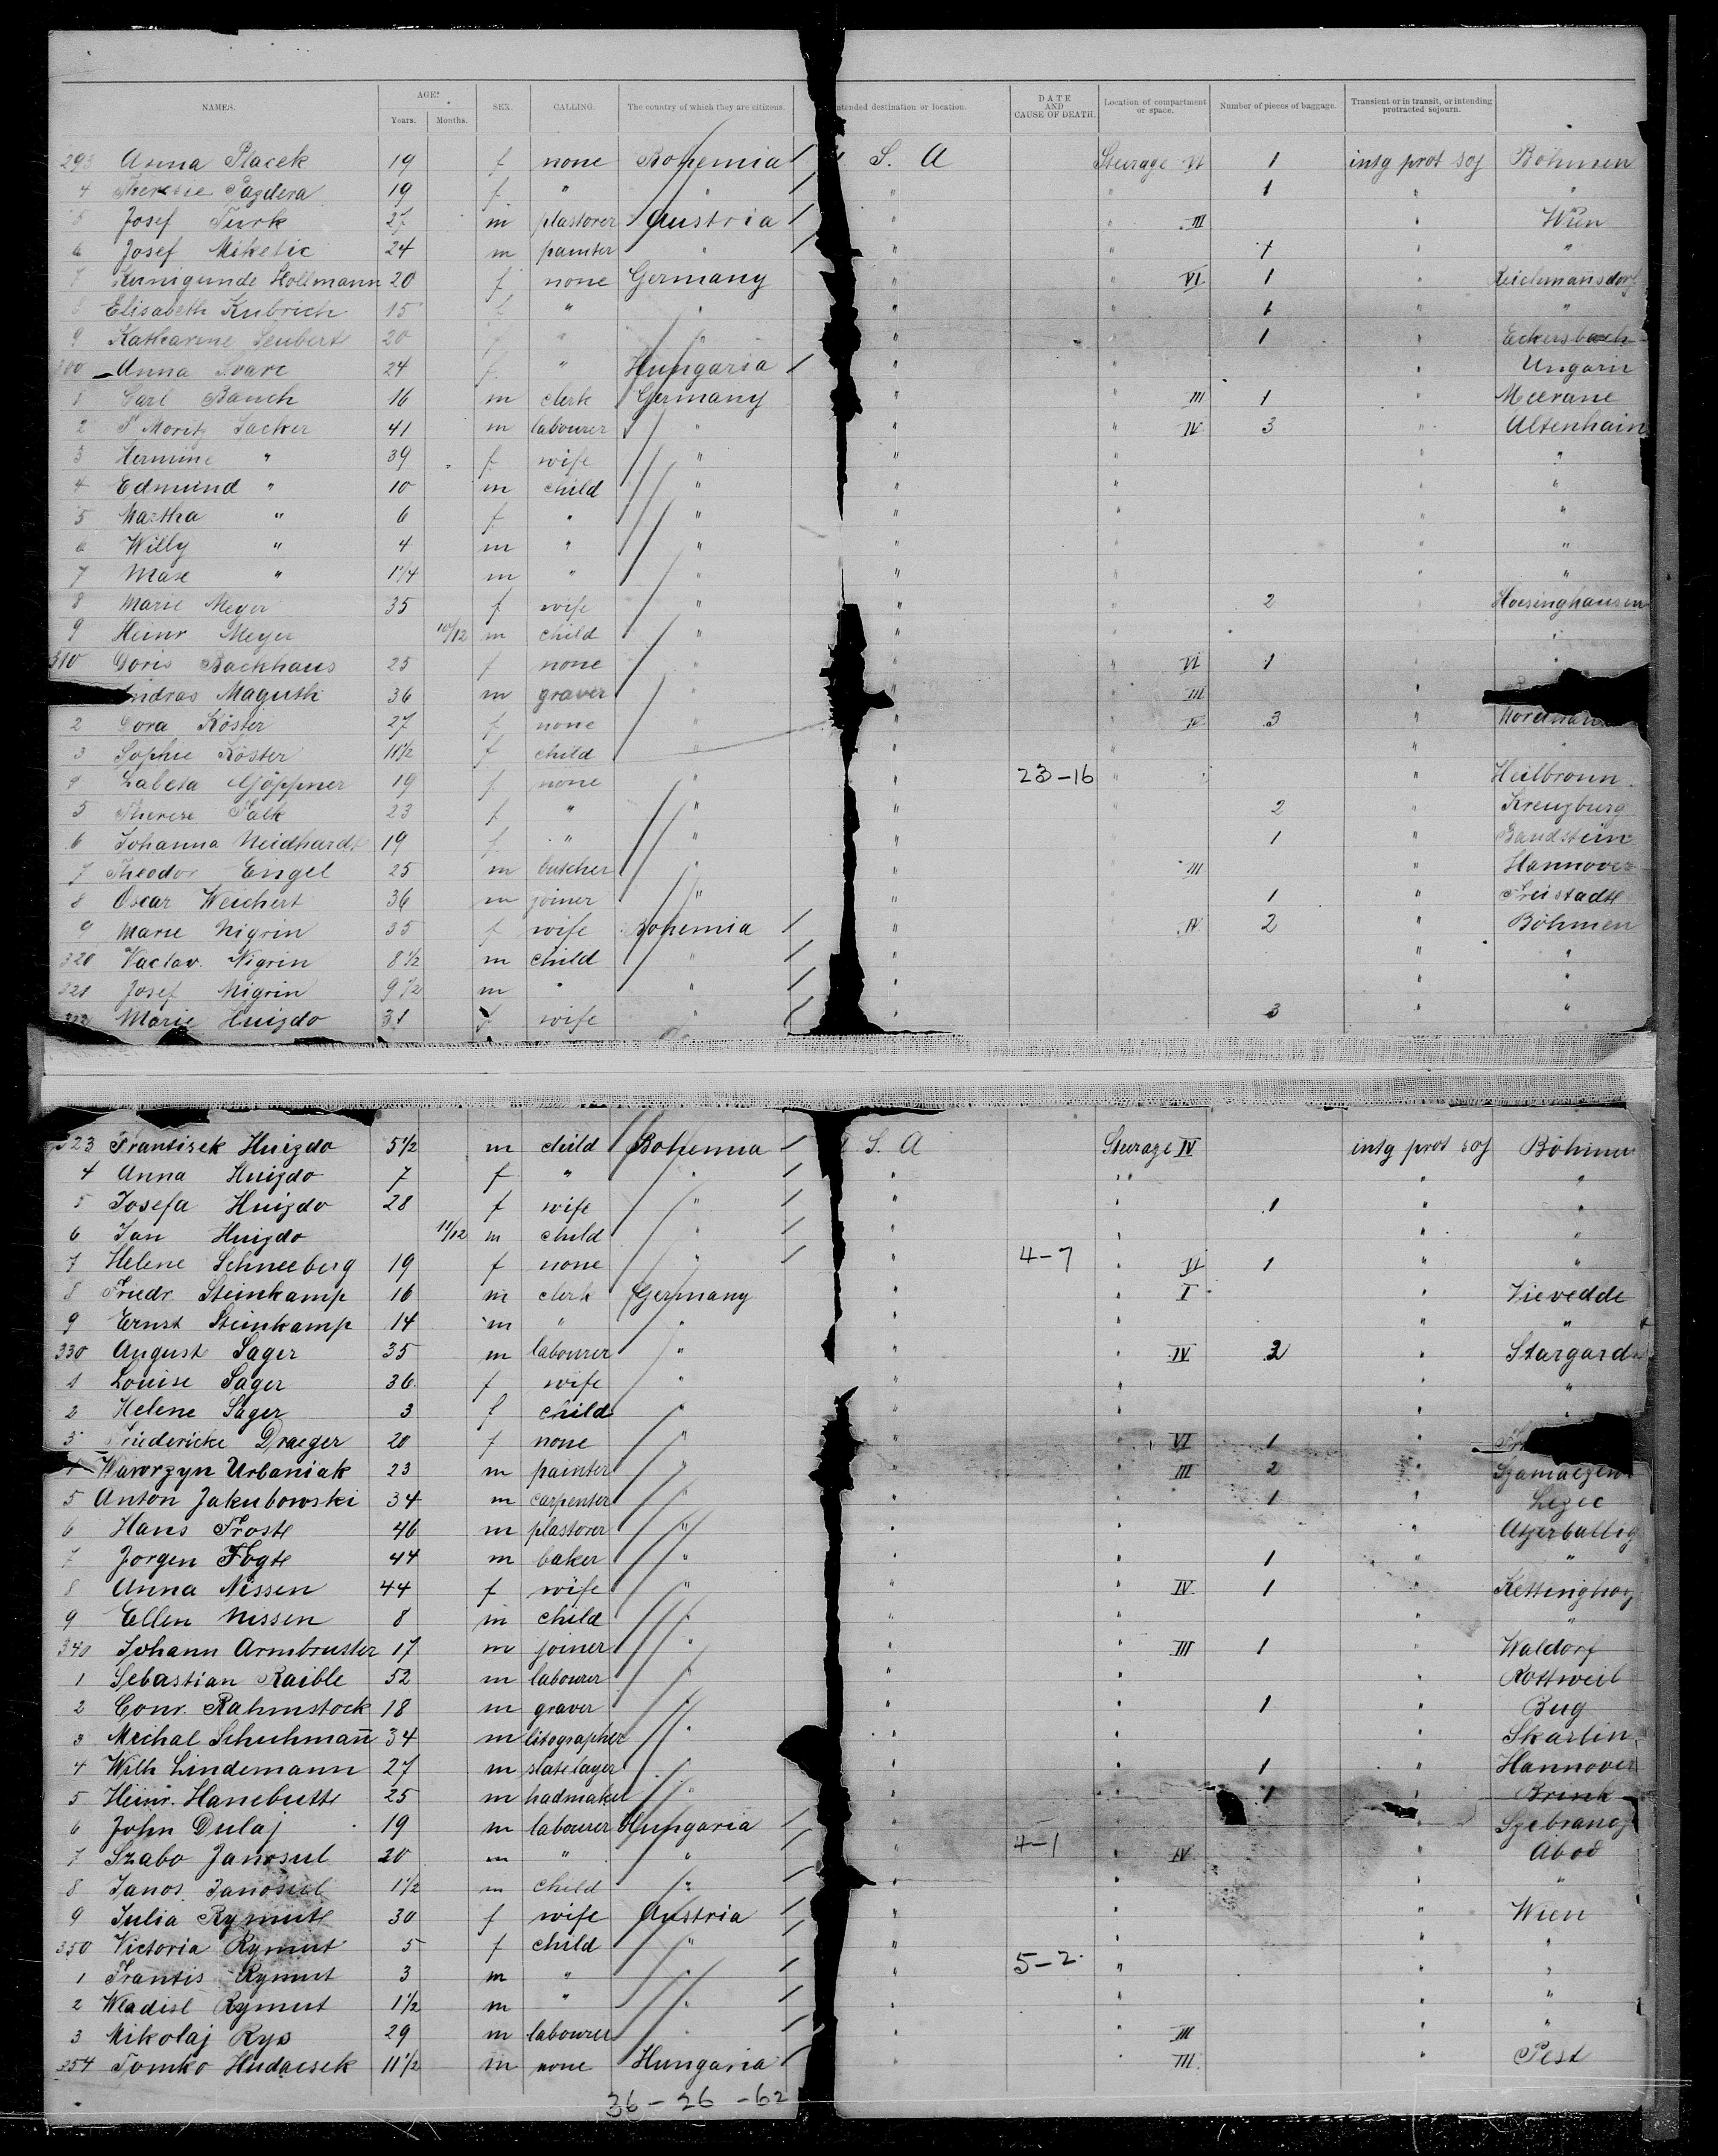 NAMES. AGE. Years. Months. SEX. CALLING. The country of which they are citizens. Intended destination or location. DATE AND CAUSE OF DEATH. Location of compartment or space. Number of pieces of baggage. Transient or in transit, or intending protracted sojourn.
293 Anna Placek 19 f none Bohemia S. A Steurage VI 1 intg prot soj Böhmen
4 Therese Pazdera 19 f " " " " 1 " "
5 Josef Turk 27 m plastorer Austria " " III " Wien
6 Josef Miketic 24 m painter " " " 1 " "
7 Kunigunde Hollmann 20 f none Germany " " VI 1 " Reichmansdorf
8 Elisabeth Kubrich 15 f " " " " 1 " "
9 Katharine Seubert 20 f " " " " 1 " Eckersbach
300 Anna Svarc 24 f " Hungaria " " " Ungarn
1 Carl Bauch 16 m clerk Germany " " III 1 " Meerane
2 Moritz Sacker 41 m labourer " " " IV 3 " Altenhain
3 Hermine " 39 f wife " " " " "
4 Edmund " 10 m child " " " " "
5 Martha " 6 f " " " " " "
6 Willy " 4 m " " " " " "
7 Max " 1 1/4 m " " " " " "
8 Marie Meyer 35 f wife " " " 2 " Hoesinghausen
9 Heinr Meyer 10/12 m child " " " " "
310 Doris Backhaus 25 f none " " " VI 1 " "
Andras Maguth 36 m graver " " " III "
2 Dora Köster 27 f none " " " IV 3 "
3 Sophie Köster 11 1/2 f child " " " "
4 Göppner 19 f none " " 23-16 " " Heilbronn
5 Therese Falk 23 f " " " " 2 " Kreuzburg
6 Johanna Neidhardt 19 f " " " 1 " Bandstein
7 Theodor Engel 25 m butcher " " III " Hannover
8 Oscar Weichert 36 m joiner " " 1 " Freistadt
9 Marie Nigrin 35 f wife Bohemia " IV 2 " Böhmen
320 Vaclav. Nigrin 8 1/2 m child " " " "
321 Josef Nigrin 9 1/2 m " " " " "
322 Marie Huizdo 31 f wife " " 3 " "
323 Frantisek Huizdo 5 1/2 m child Bohemia S. A Steurage IV intg prot soj Böhmen
4 Anna Huizdo 7 f " " " " " "
5 Josefa Huizdo 28 f wife " " 1 " "
6 Jan Huizdo 11/12 m child " " " " "
7 Helene Schneeberg 19 f none " " 4-7 " VI 1 " "
8 Friedr. Steinkamp 16 m clerk Germany " " I " Vievedde
9 Ernst Steinkamp 14 m " " " " " "
330 August Sager 35 m labourer " " " IV 2 " Stargard
1 Louise Sager 36 f wife " " " " "
2 Helene Sager 3 f child " " " "
3 Friedericke Draeger 20 f none " " " VI 1 "
Wawrzyn Urbaniak 23 m painter " " " III 2 "
5 Anton Jakubowski 34 m carpenter " " " 1 "
6 Hans Frost 46 m plastorer " " " " Atzerballig
7 Jorgen Fogt 44 m baker " " " 1 " "
8 Anna Nissen 44 f wife " " " IV 1 "
9 Ellen Nissen 8 m child " " " " "
340 Johann Armbruster 17 m joiner " " " III 1 " Waldorf
1 Sebastian Raible 52 m labourer " " " " Rottweil
2 Conr. Rahmstock 18 m graver " " " 1 " Bug
3 Michal Schuhmañ 34 m litographer " " " " Skarlin
4 Wilh Lindemann 27 m slatelayer " " " 1 " Hannover
5 Heinr. Hanebutt 25 m hadmaker " " " 1 " Brink
6 John Dulaj 19 m labourer Hungaria " " "
7 Szabo Janosul 20 m " " " 4-1 " IV " Abod
8 Janos Janosul 1 1/2 m child " " " " "
9 Julia Rymut 30 f wife Austria " " " Wien
350 Victoria Rymut 5 f child " " " " "
1 Frantis Rymut 3 m " " " 5-2. " " "
2 Wladisl Rymut 1 1/2 m " " " " " "
3 Mikolaj Rys 29 m labourer " " " III " "
354 Tomko Hudacsek 11 1/2 m none Hungaria " " III " Pest
36-26-62